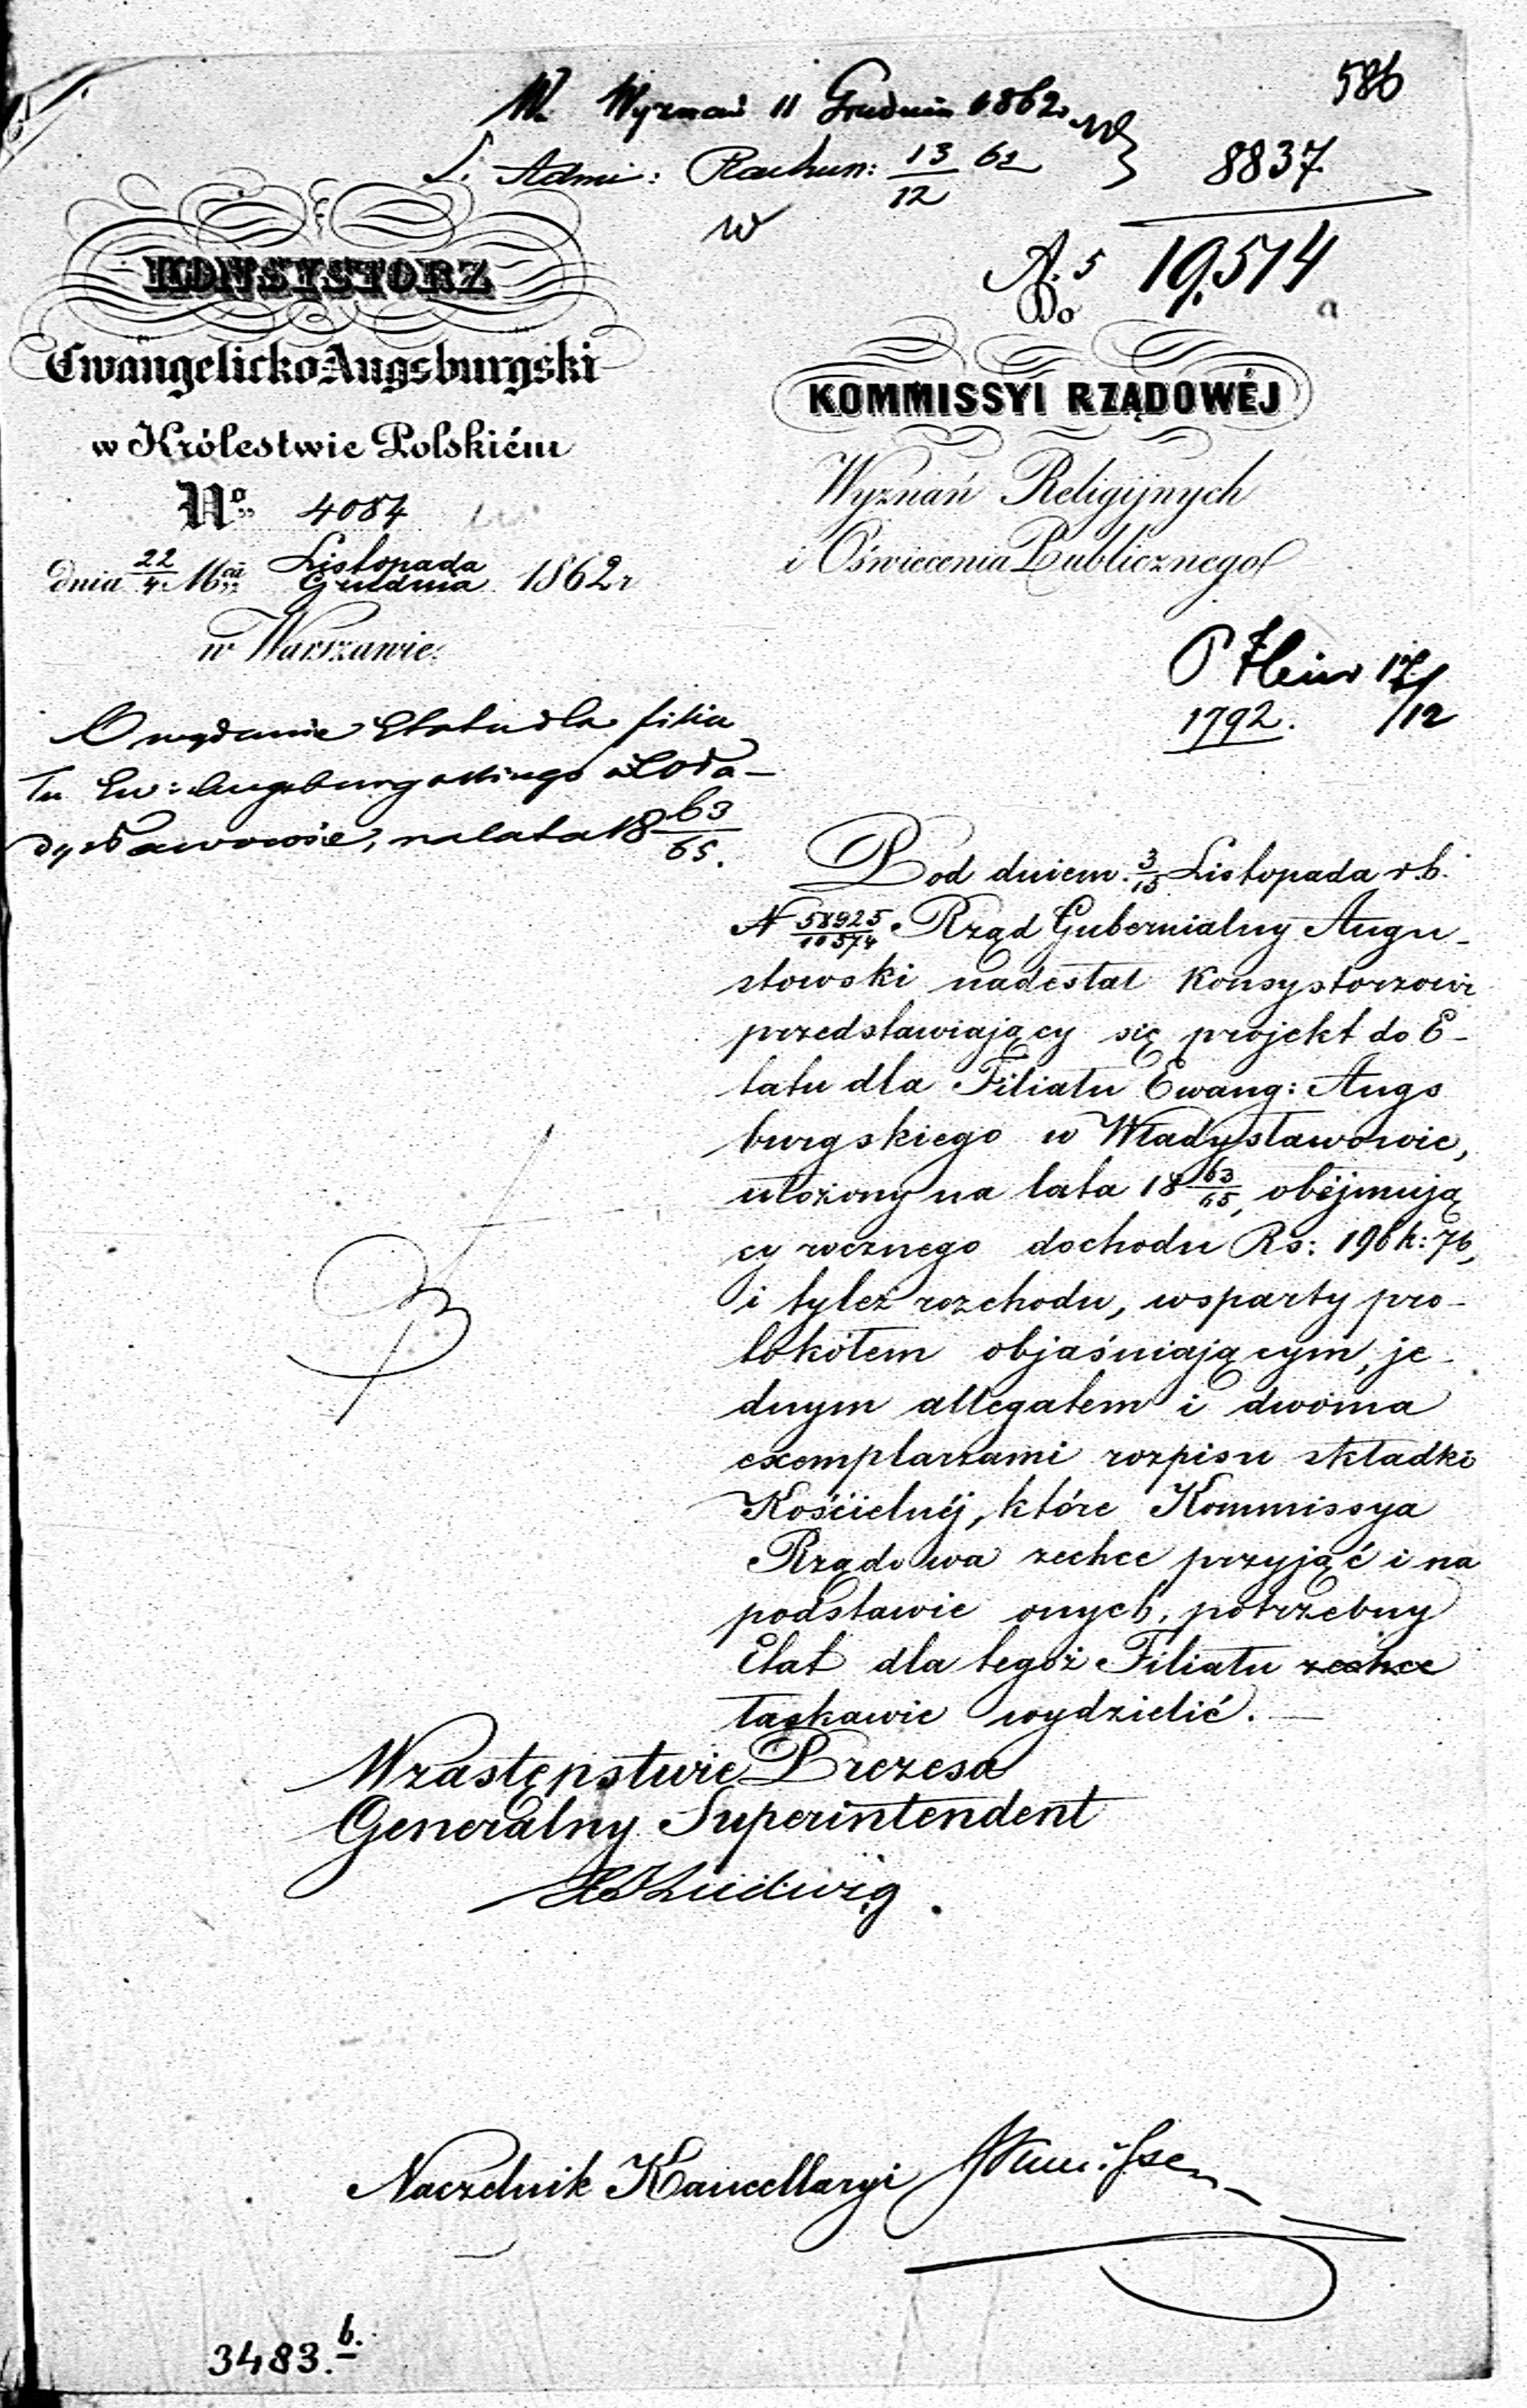 586
W. Wyznań 11 Grudnia 1862.
S. Admi: Rachun: 13/12 62
8837.
w
A. 5 19,514
KONSYSTORZ
Ewangelicko-Augsburgski
w Królestwie Polskiém
No. 4084
dnia 22/4 Mca Listopada/Grudnia 1862 r
w Warszawie.
Do
KOMMISSYI RZĄDOWÉJ
Wyznań Religijnych
i Oświecenia Publicznego
P 17/12
1792.
O wydanie Etatu dla filia
łu Ew: Augsburgskiego w Wła-
dysławowie, na lata 18 63/65.
Pod dniem 3/15 Listopada r.b.
N 58925/10574 Rząd Gubernialny Augu-
stowski nadesłał Konsystorzowi
przedstawiający się projekt do E-
tatu dla Filiału Ewang: Augs
burgskiego w Władysławowie,
ułożony na lata 18 63/65, obéjmują
cy rocznego dochodu Rs: 196 k: 76,
i tyleż rozchodu, wsparty pro-
tokółem objaśniającym, je-
dnym allegatem i dwoma
exemplarzami rozpisu składki
Kościelnéj, które Kommissya
Rządowa zechce przyjąć i na
podstawie onych, potrzebny
Etat dla tegoż Filiału zechce
łaskawie wydzielić.
W zastępstwie Prezesa
Generalny Superintendent
Ludwig.
Naczelnik Kancellaryi
3483.b.